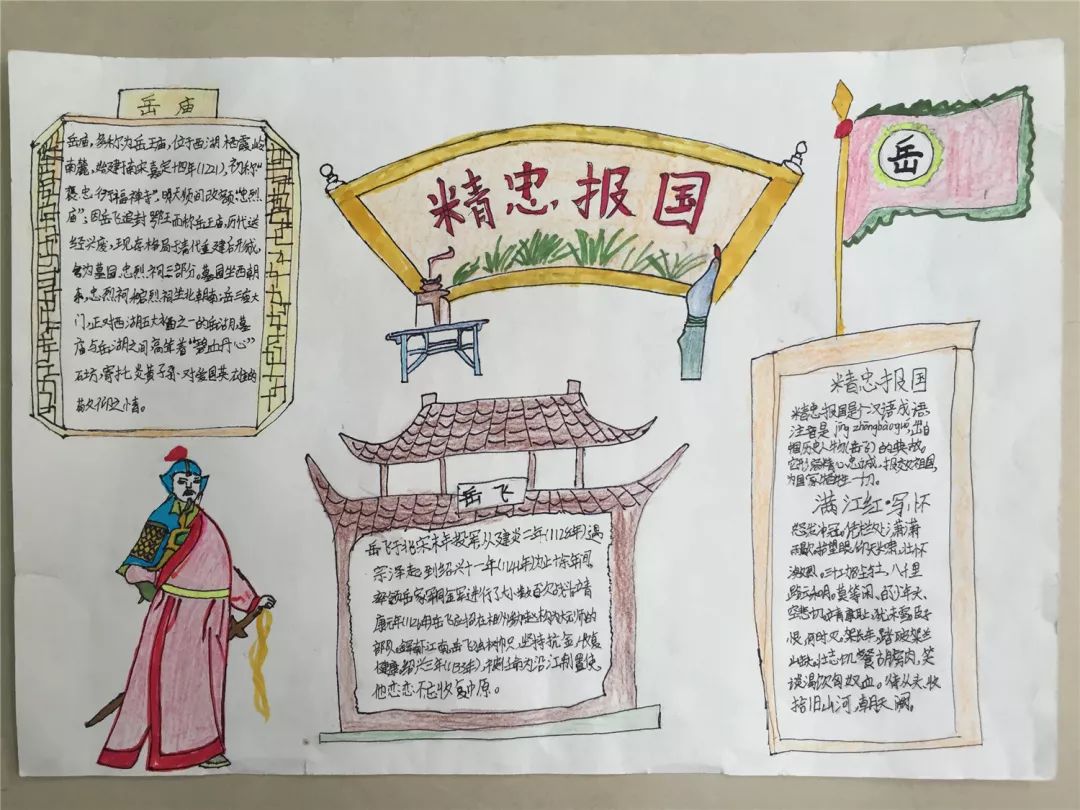 岳庙
岳庙,又称为岳王庙,位于西湖栖霞岭
南麓,始建于南宋嘉定十四年(1221),初称“
褒忠衍福禅寺”,明天顺间改额“忠烈
庙”,因岳飞追封鄂王而称岳王庙,历代迭
经兴废,现存格局于清代重建后形成,
分为墓园、忠烈祠三部分。墓园坐西朝
东,忠烈祠启烈祠坐北朝南,岳庙大
门,正对西湖五大之一的岳湖,墓
庙与岳湖之间高耸着“碧血丹心”
石坊,寄托炎黄子孙对爱国英雄的
敬仰之情。
精忠报国
岳
岳飞
岳飞于北宋末年投军,从建炎二年(1128年)遇
宗泽起到绍兴十一年(1141年)为止十余年间,
率领岳家军同金军进行了大小数百次战斗
康元年(1126年)岳飞在相州
部队,江南,岳飞帜,坚持抗金,收复
建康,绍兴三年(1133年),江南沿江制置使,
他恋恋不忘收复中原。
精忠报国
精忠报国是个汉语成语,
注音是jīng zhōng bào guó,出自
中国历史人物(岳飞)的典故。
它形容精心忠诚,报效祖国,
为国家牺牲一切。
满江红·写怀
怒发冲冠,凭栏处、潇潇
雨歇。抬望眼,仰天长啸,壮怀
激烈。三十功名尘土,八千里
路云和月。莫等闲,白了少年头,
空悲切。靖康耻,犹未雪。臣子
恨,何时灭。驾长车,踏破贺兰
山缺。壮志饥餐胡虏肉,笑
谈渴饮匈奴血。待从头,收
拾旧山河,朝天阙。